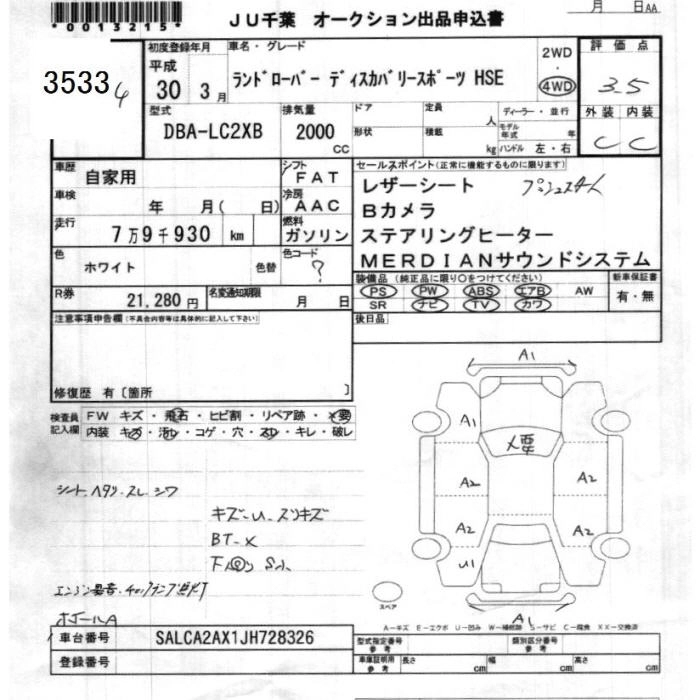 *0013215*
JU千葉 オークション出品申込書
月 日AA
35334
初度登録年月
平成
30 3月
車名・グレード
ランドローバー ディスカバリースポーツ HSE
2WD
・
4WD
評価点
3.5
外装 内装
C C
型式
DBA-LC2XB
排気量
2000
CC
ドア
形状
定員
人
積載
kg
ディーラー・並行
モデル年式 年
ハンドル 左・右
車歴
自家用
シフト
FAT
車検
年 月( 日)
冷房
AAC
走行
7万9千930 km
燃料
ガソリン
色
ホワイト 色替
色コード
?
R券
21,280円
名変通知期限
月 日
セールスポイント(正常に機能するものに限ります)
レザーシート プッシュスタート
Bカメラ
ステアリングヒーター
MERDIANサウンドシステム
装備品 (純正品に限り○をつけてください)
PS PW ABS エアB AW
SR ナビ TV カワ
新車保証書
有・無
後日品
注意事項申告欄(不具合内容等は具体的に記入して下さい)
修復歴 有〔箇所 〕
検査員
記入欄
FW キズ・飛石・ヒビ割・リペア跡・×要
内装 キズ・汚レ・コゲ・穴・スレ・キレ・破レ
シートヘタリ・スレ・シワ
キズ-U・スリキズ
BT-X
エンジン異音・チェックランプ点灯
ホイールA
A1
A1
×要
A2
A2
A2
A2
U1
A1
スペア
A-キズ E-エクボ U-凹み W-補修跡 S-サビ C-腐食 XX-交換済
車台番号
SALCA2AX1JH728326
登録番号
型式指定番号
参考
類別区分番号
参考
車庫証明用
参考
長さ cm
幅 cm
高さ cm